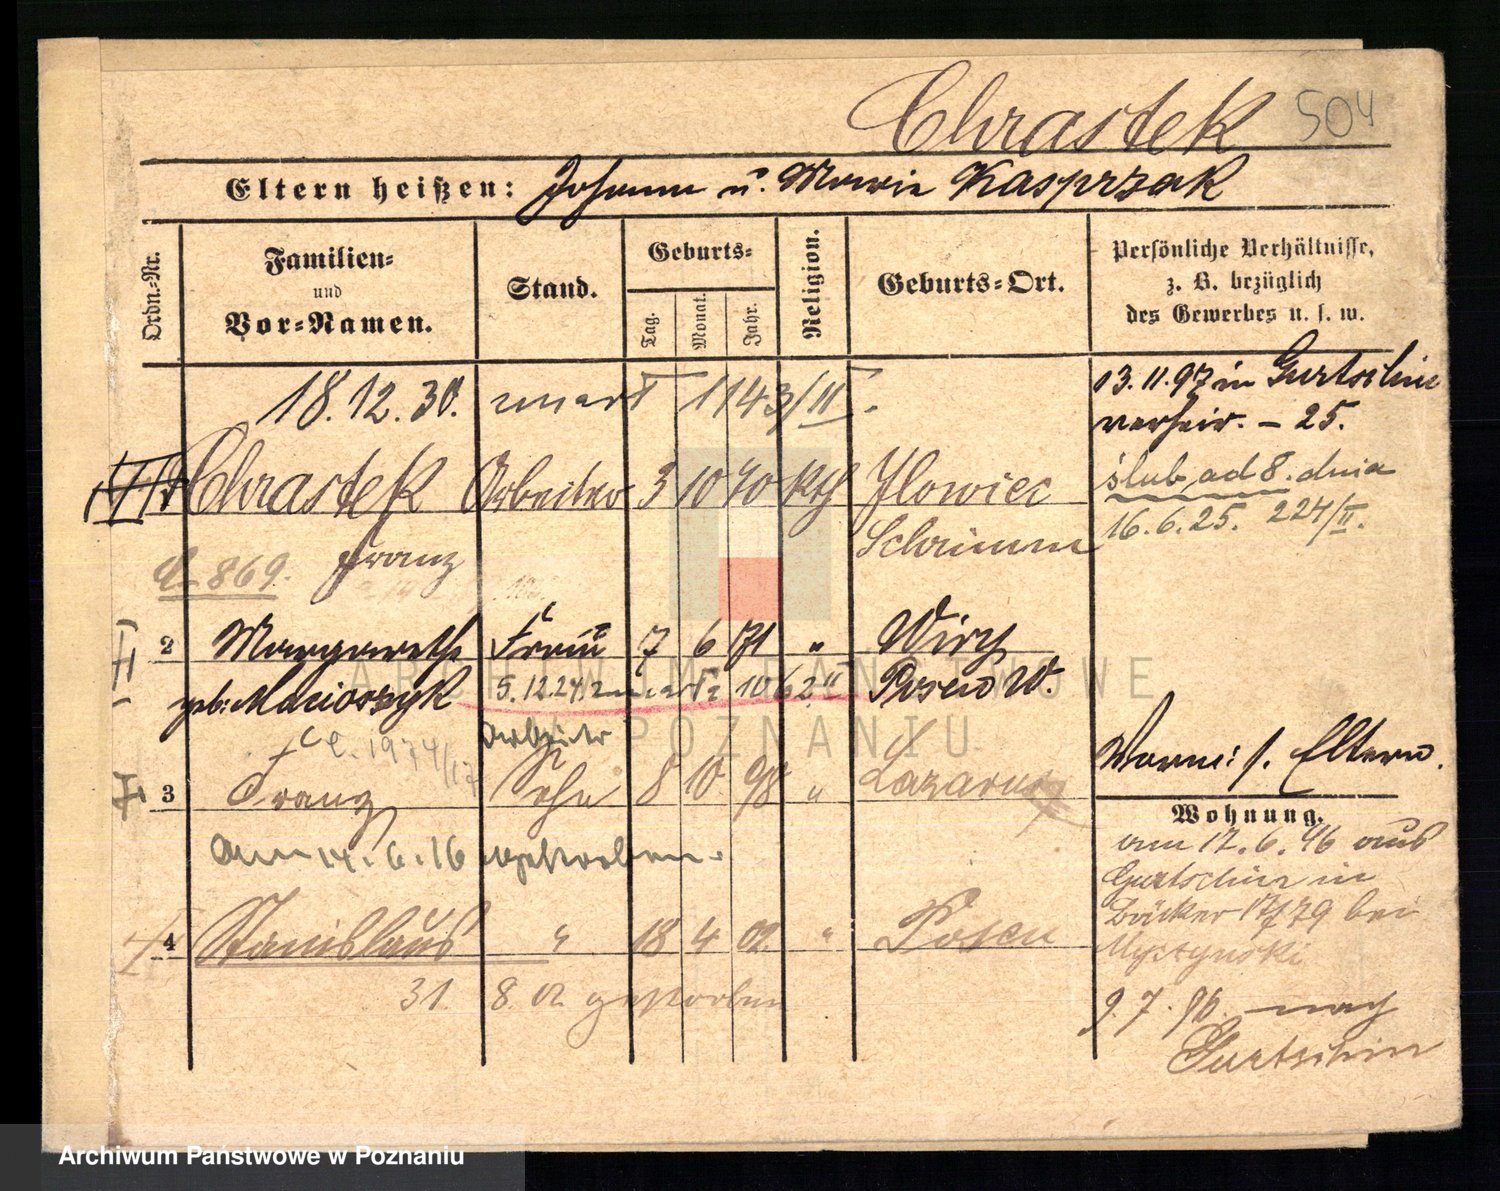 Chrastek 504
Eltern heißen: Johann u. Marie Kasprzak
Ordn.-Nr.
Familien-
und
Vor-Namen.
Stand.
Geburts-
Tag.
Monat.
Jahr.
Religion.
Geburts-Ort.
Persönliche Verhältnisse,
z. B. bezüglich
des Gewerbes u. s. w.
18.12.30. zmarł 1143/II.
Chrastek Arbeiter 3 10 70 kth Ilowiec
Franz Schrimm
869.
2 Margarethe Frau 7 6 71 " Wiry
geb: Macioszyk 5.12.24. zmarła 1062/II Posen W.
Arbeiter
3 Franz Sohn 8 10 98 " Lazarus
Am 14.6.16 gestorben.
4 Stanislaus " 18 4 02 " Posen
31. 8. 02 gestorben
13.11.97 in Gurtschin
verheir. – 25.
ślub ad 8. dnia
16.6.25. 224/II.
Vorm: s. Eltern.
Wohnung.
am 17.6.96 aus
Gurtschin in
Bäcker 17/79 bei
Myszynski
9.7.96. nach
Gurtschin
ARCHIWUM PAŃSTWOWE
W POZNANIU
Archiwum Państwowe w Poznaniu